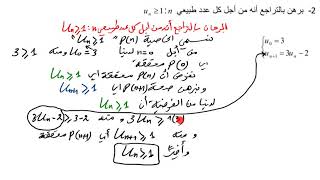 2- برهن بالتراجع أنه من أجل كل عدد طبيعي n : uₙ ≥ 1
u₀ = 3
uₙ₊₁ = 3uₙ - 2
البرهان بالتراجع أنه من أجل كل عدد طبيعي n : uₙ ≥ 1
نسمي الخاصية P(n) : uₙ ≥ 1
من أجل n=0 لدينا u₀=3 ومنه 3 ≥ 1
أي P(0) محققة
نفرض أن P(n) محققة أي uₙ ≥ 1
ونبرهن صحة P(n+1) أي uₙ₊₁ ≥ 1
لدينا من الفرضية أن uₙ ≥ 1
3uₙ ≥ 1(3) ومنه 3uₙ-2 ≥ 3-2
ومنه uₙ₊₁ ≥ 1 أي P(n+1) محققة
وأخيرا uₙ ≥ 1